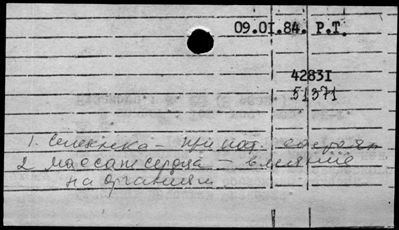 09.01.84. Р.Т.
42831
51371
1. Селезенка - при пат.
2 массаж сердца - влияние
на организм